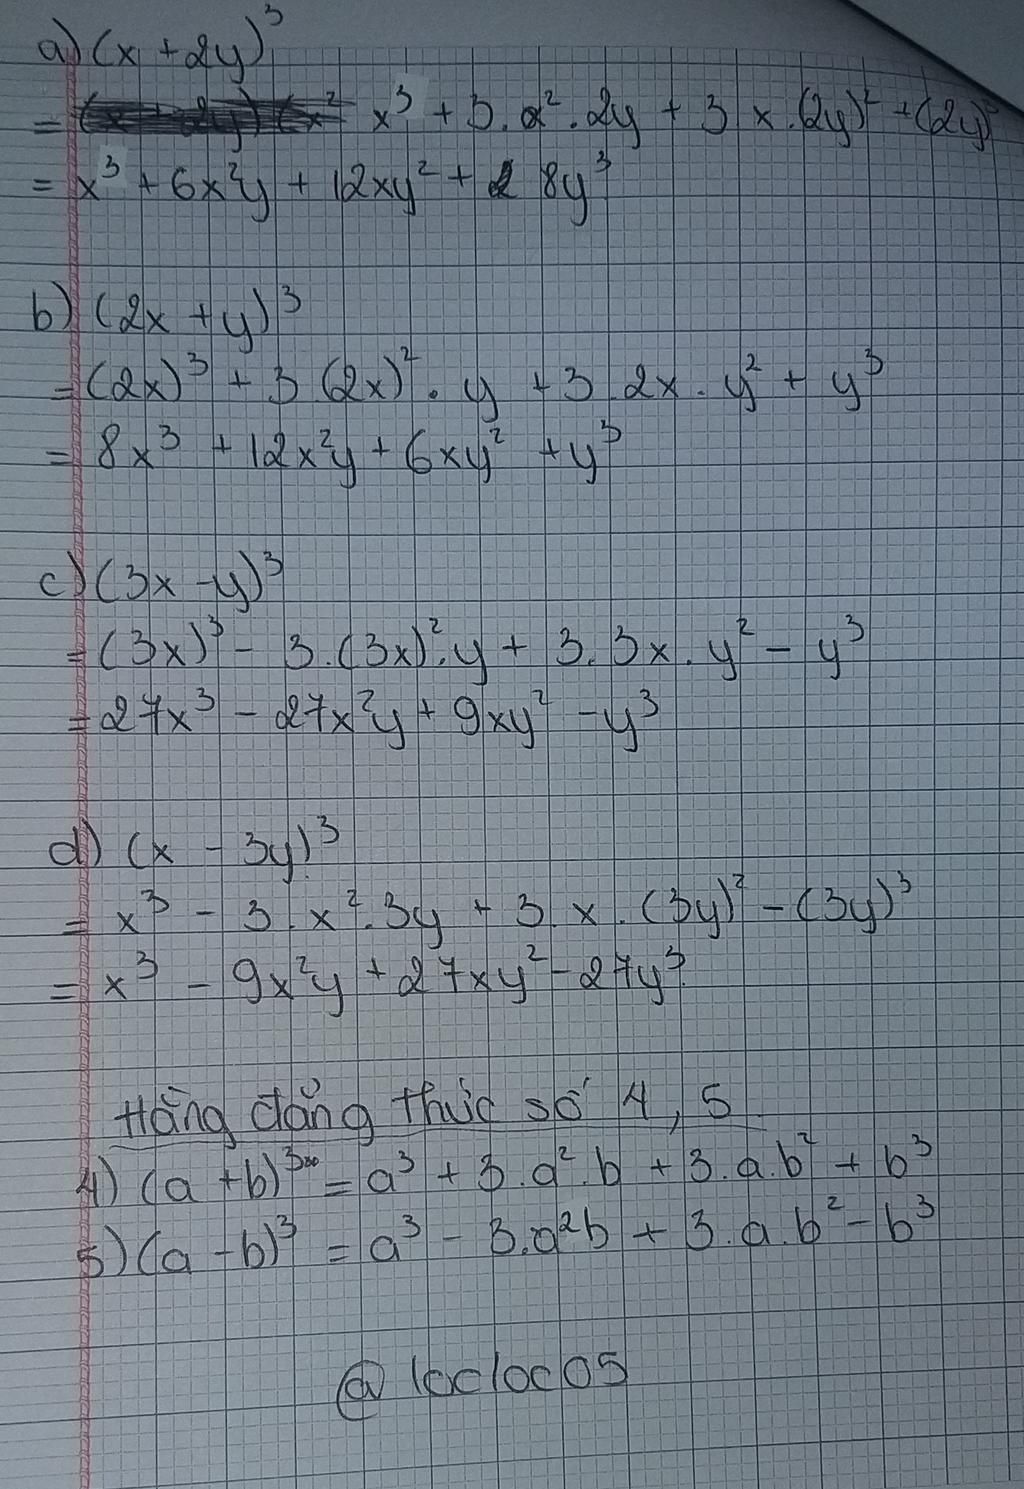 a) (x + 2y)³
= x³ + 3.a².2y + 3 x.(2y)² + (2y)³
= x³ + 6x²y + 12xy² + 8y³
b) (2x + y)³
= (2x)³ + 3 (2x)² . y + 3 2x . y² + y³
= 8x³ + 12x²y + 6xy² + y³
c) (3x - y)³
= (3x)³ - 3.(3x)².y + 3.3x.y² - y³
= 27x³ - 27x²y + 9xy² - y³
d) (x - 3y)³
= x³ - 3.x².3y + 3.x.(3y)² - (3y)³
= x³ - 9x²y + 27xy² - 27y³
Hằng đẳng thức số 4, 5
4) (a + b)³ = a³ + 3.a².b + 3.a.b² + b³
5) (a - b)³ = a³ - 3.a²b + 3.a.b² - b³
@locloc05